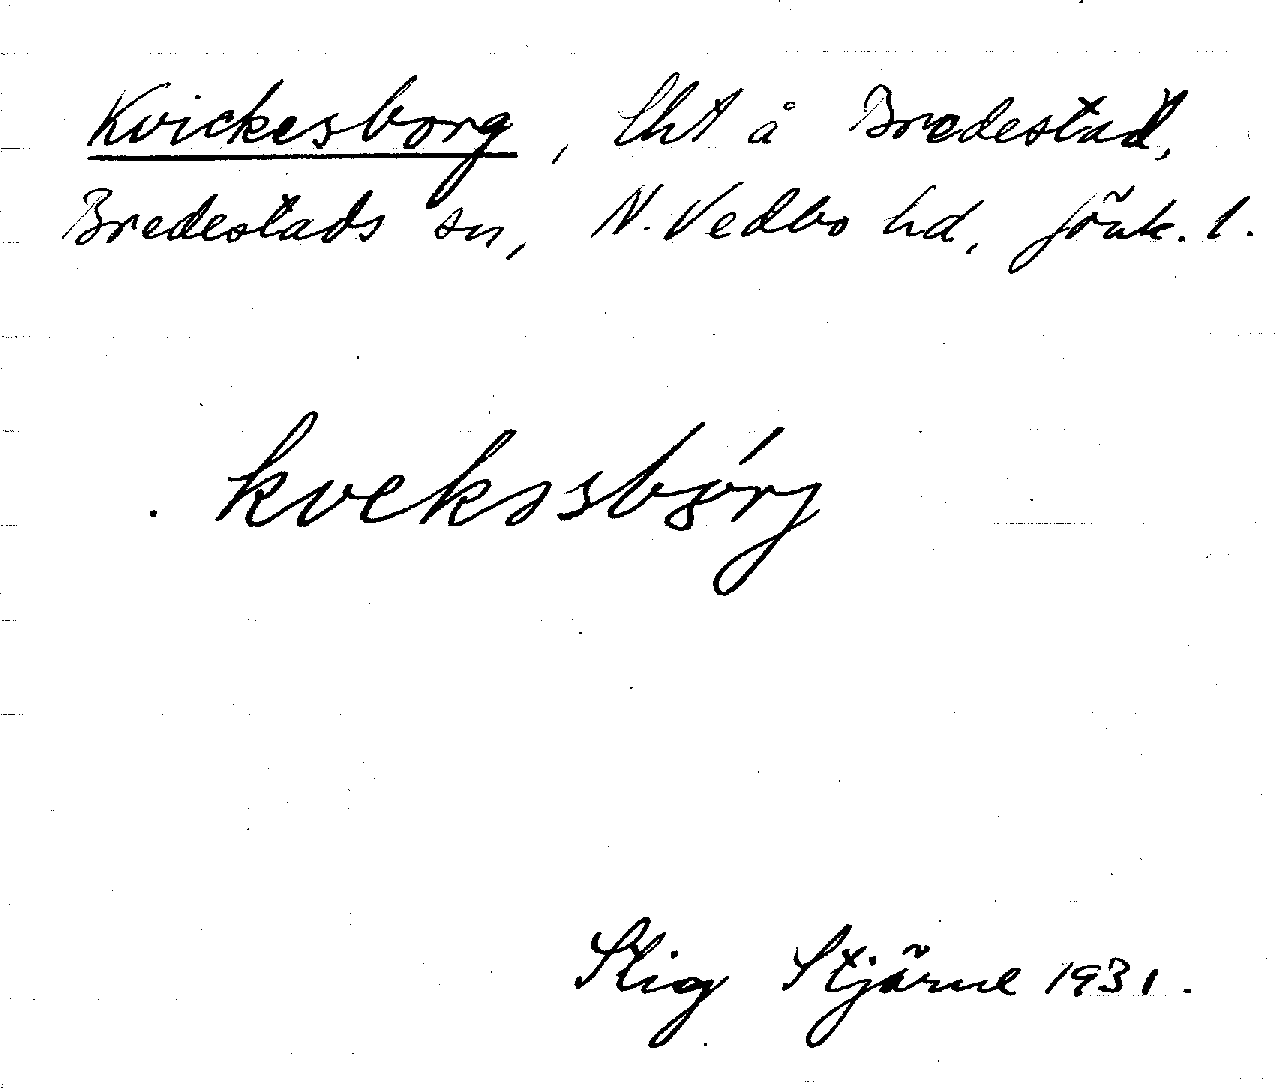 Kvickesborg, lht å Bredestad,
Bredestads sn, N. Vedbo hd, Jönk. l.
kvekəsbȯrj
Stig Stjärne 1931.